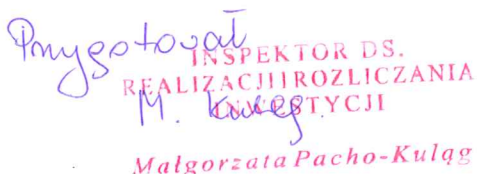 Przygotował
INSPEKTOR DS.
REALIZACJI I ROZLICZANIA
INWESTYCJI
M. Kuląg
Małgorzata Pacho-Kuląg